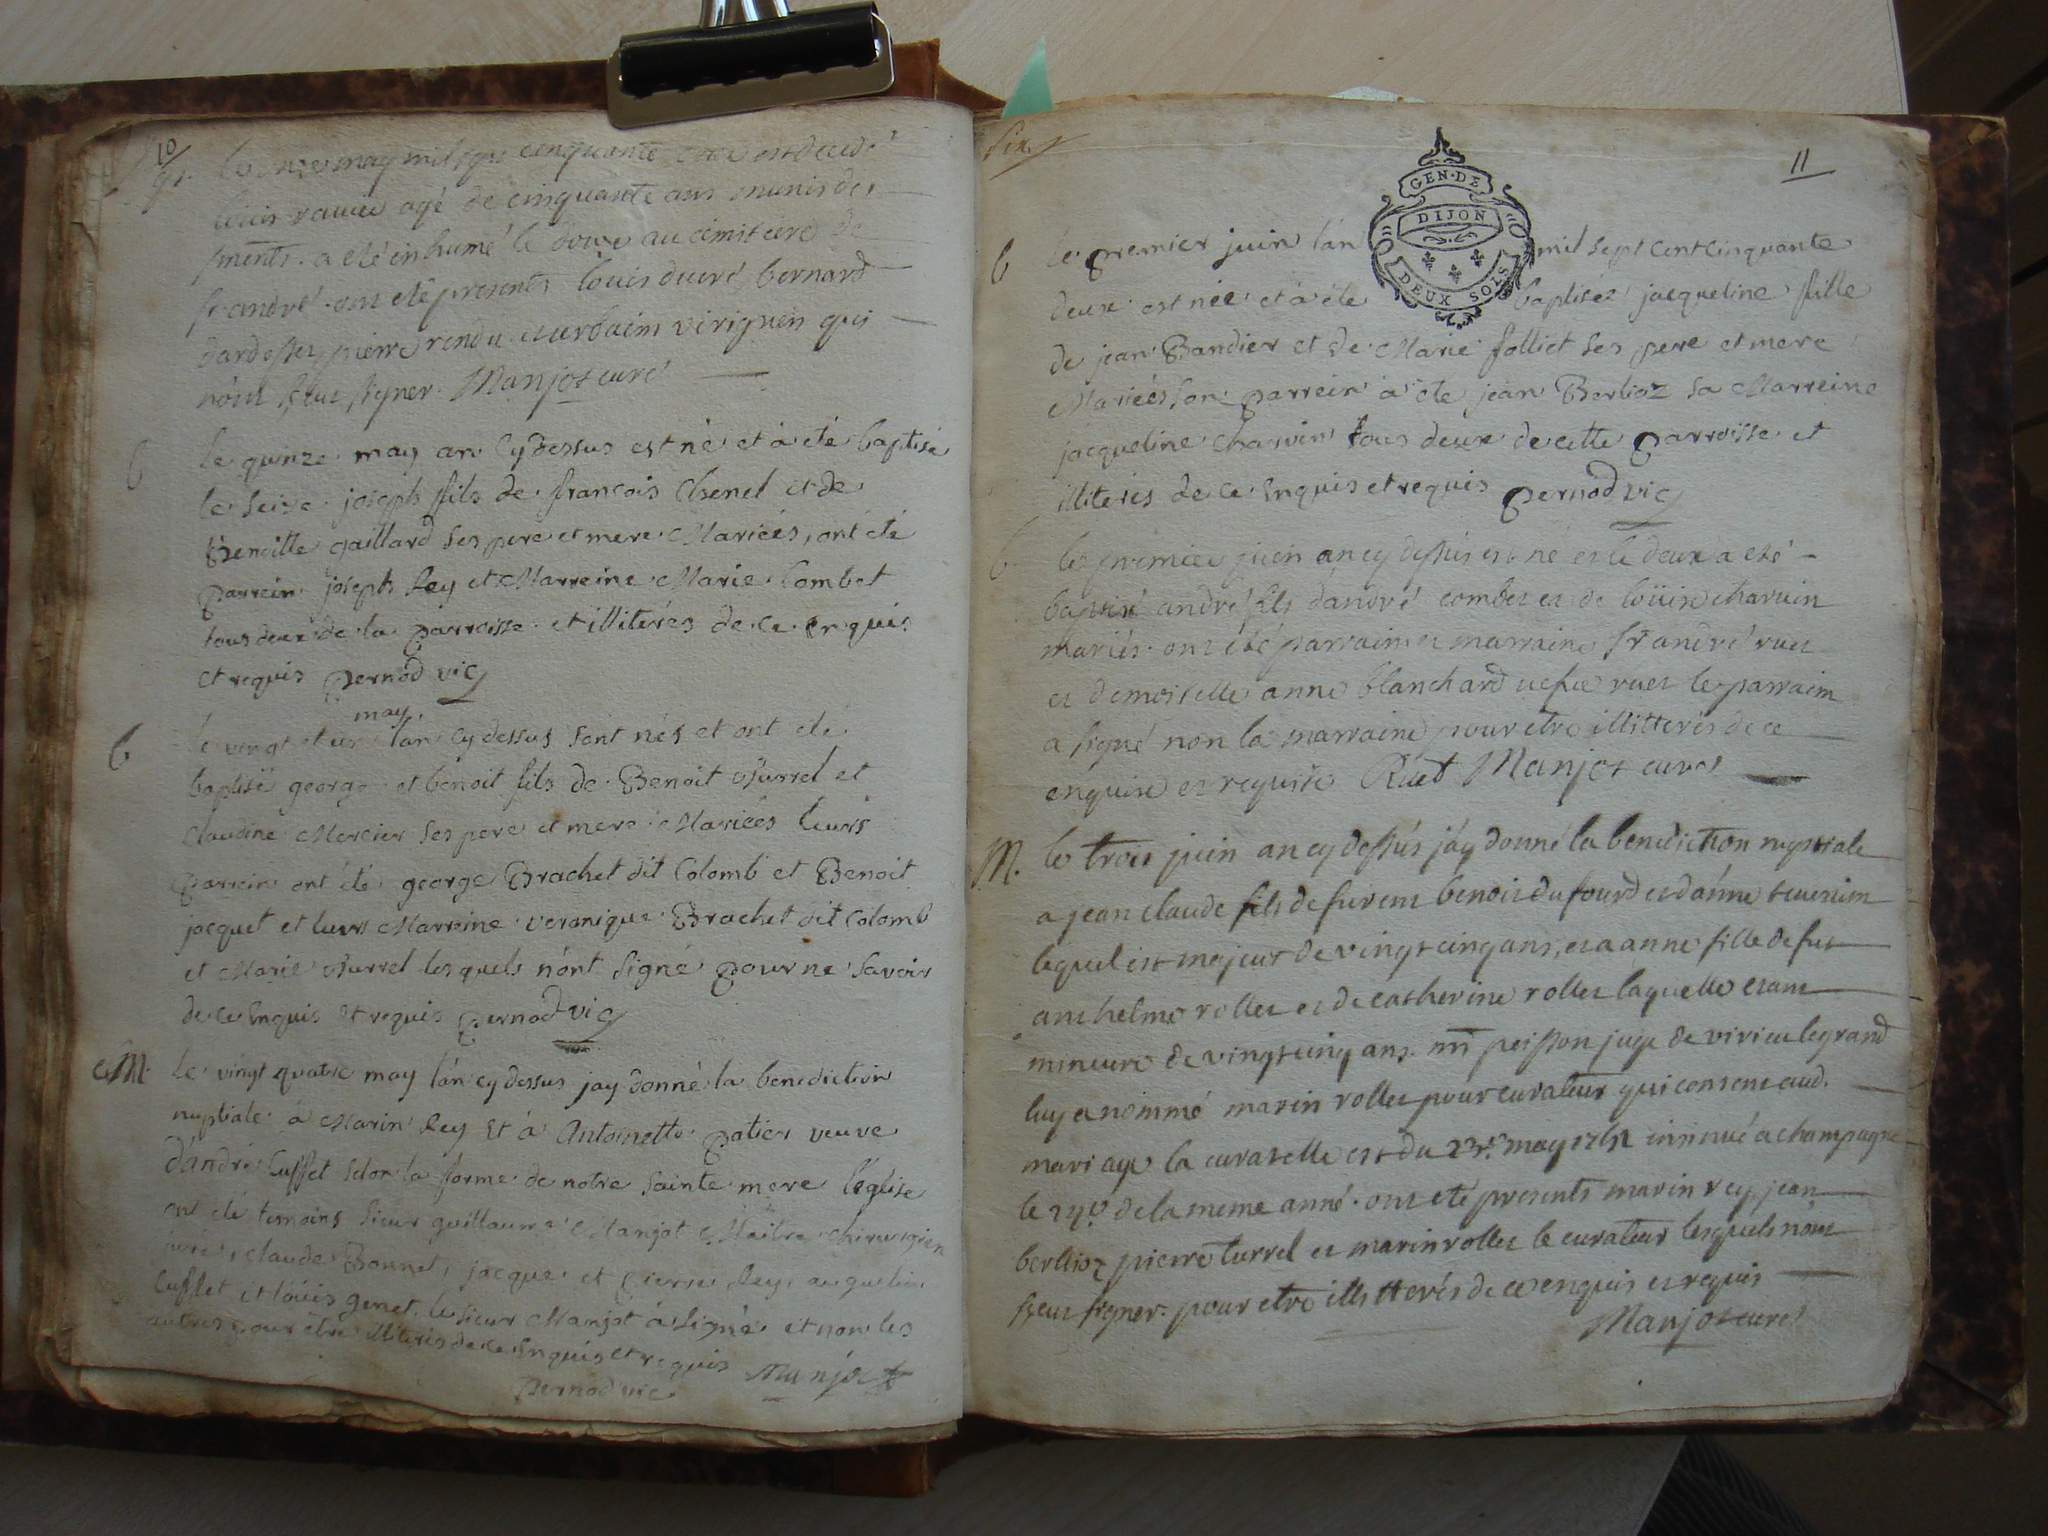 10
le onze may mil sept cinquante deux est decedé
louis ravier agé de cinquante ans munis des
sments. a eté inhumé le douze au cimitiere de
st andré. ont eté presents louis ducré, bernard
dardessez pierre rendu et urbain viriguen qui
nont sceu signer. Manjot curé
b le quinze may an cy dessus est né et à eté baptisé
le seize joseph fils de francois Chenel et de
Benoitte gaillard ses pere et mere Mariées, ont eté
parrein joseph Rey et Marreine Marie Combet
tous deux de la parroisse et illiterés de ce enquis
et requis pernod vic
may
b le vingt et un l'an cy dessus sont nés et ont eté
baptisé george et benoit fils de Benoit Burrel et
Claudine Mercier ses pere et mere Mariées leurs
parrein ont été george Brachet dit Colomb et Benoit
jacquet et leurs Marreine veronique Brachet dit Colomb
et Marie Burrel lesquels n'ont signé pour ne savoir
de ce Enquis et requis pernod vic
M le vingt quatre may l'an cy dessus jay donné la benediction
nuptiale à Marin Rey et à Antoinette patier veuve
d'andré Cuffet selon la forme de notre sainte mere l'église
ont été temoins sieur guillaume Manjot Maitre chirurgien
juré, claude Bonnet, jacque et pierre Rey, anguelin
Cuffet et loüis genet, le sieur Manjot à signé et non les
autres pour être illiterés de ce Enquis et requis Manjot
pernod vic
Six
11
GEN·DE
DIJON
DEUX SOLS
b le premier juin l'an mil sept cent cinquante
deux est née et à été baptisez jacqueline fille
de jean Bandier et de Marie folliet ses pere et mere
Mariées son parrein à été jean Berlioz sa Marreine
jacqueline charvin tous deux de cette parroisse et
illiterés de ce Enquis et requis pernod vic
b le premier juin an cy dessus est né et le deux a eté
baptisé andré fils dandré combet et de loüise charvin
mariés. ont été parrain et marraine sr andré ruet
et demoiselle anne blanchard ruet le parrain
a signé non la marraine pour etre illitterés de ce
enquise et requise Ruet Manjot curé
M. le trois juin an cy dessus j'ay donné la benediction nuptiale
a jean claude fils de furent benoit du fourd et d'anne
lequel est majeur de vingt cinq ans, et a anne fille de fut
anthelme rollet et de catherine rollet laquelle etant
mineure de vingt cinq ans. mr peisson juge de virieu le grand
luy a nommé marin rollet pour curateur qui consent aud.
mariage la curatelle est du 23e may 1752 insinué a champagne
le de la meme anné. ont eté presents marin rey, jean
berllioz pierre turrel et marin rollet le curateur lesquels n'ont
sceu signer. pour etre illitterés de ce enquis et requis
Manjot curé